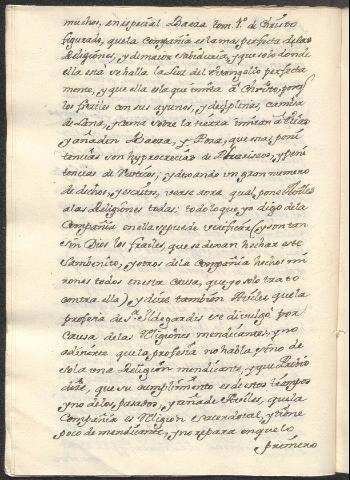 muchos, en especial Baeza tom. 1º de Christo
figurado, que la Compañia es la mas perfecta de las
Religiones, y de maior sabiduria, y que solo donde
ella està se halla la luz del evangelio perfecta
mente, y que ella es la que imita à Christo, porq
los frailes con sus ayunos, y deziplinas, camisa
de Lana, y cama sobre la tierra imitan à Elias
y añaden Baeza, y Poza, que esas peni
tencias son hypocrecias de Phariseos, y peni
tencias de Perticos; y dexando un gran numero
de dichos, y escritos, verse aora qual pone Aviles
a las Religiones todas: todo lo que yo digo de la
Compañia en ella se puede verificar (y son tan
sin Dios los frailes, que se devan hechar este
Sambenito, y otros de la Compañia hechos mi
rones todos en esta causa, que yo solo trato
contra ella) y dize tambien Aviles que la
profesia de Sta Ildegardis se divulgò por
causa de las Religiones mendicantes, y no
advierte que la profesia no habla sino de
sola una Religion mendicante, y que Rubio
dize, que su cumplimiento es de estos tiempos
y no de los pasados, y añade Aviles, que la
Compañia es Religion sacerdotal, y tiene
poco de mendicante, y no repara en que lo
primero